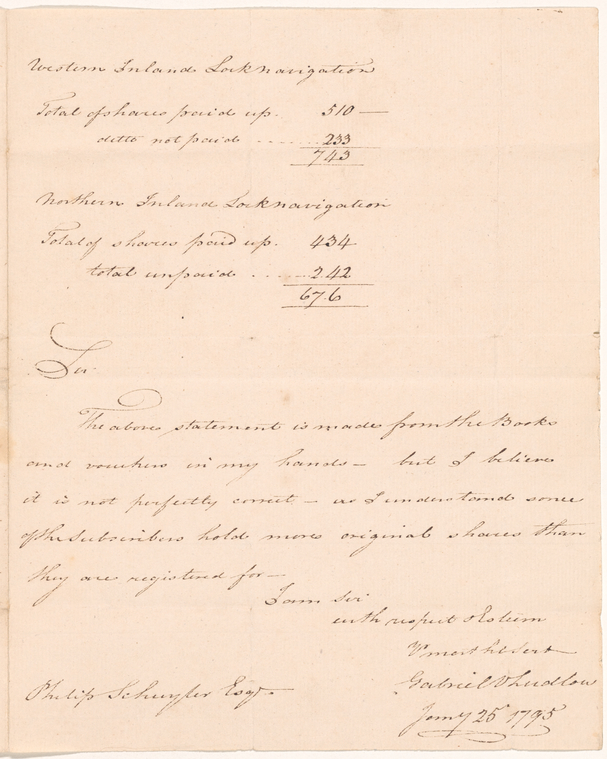 Western Inland Lock navigation
Total of shares paid up. 510 —
ditto not paid ...... 233
743
Northern Inland Lock navigation
Total of shares paid up. 434
total unpaid ..... 242
676
Sir
The above statement is made from the Books
and vouchers in my hands — but I believe
it is not perfectly correct — as I understand some
of the Subscribers hold more original shares than
they are registered for —
I am Sir
with respect & Esteem
Yr most hl Sert
Gabriel V Ludlow
Philip Schuyler Esqr —
Jany 25 1795